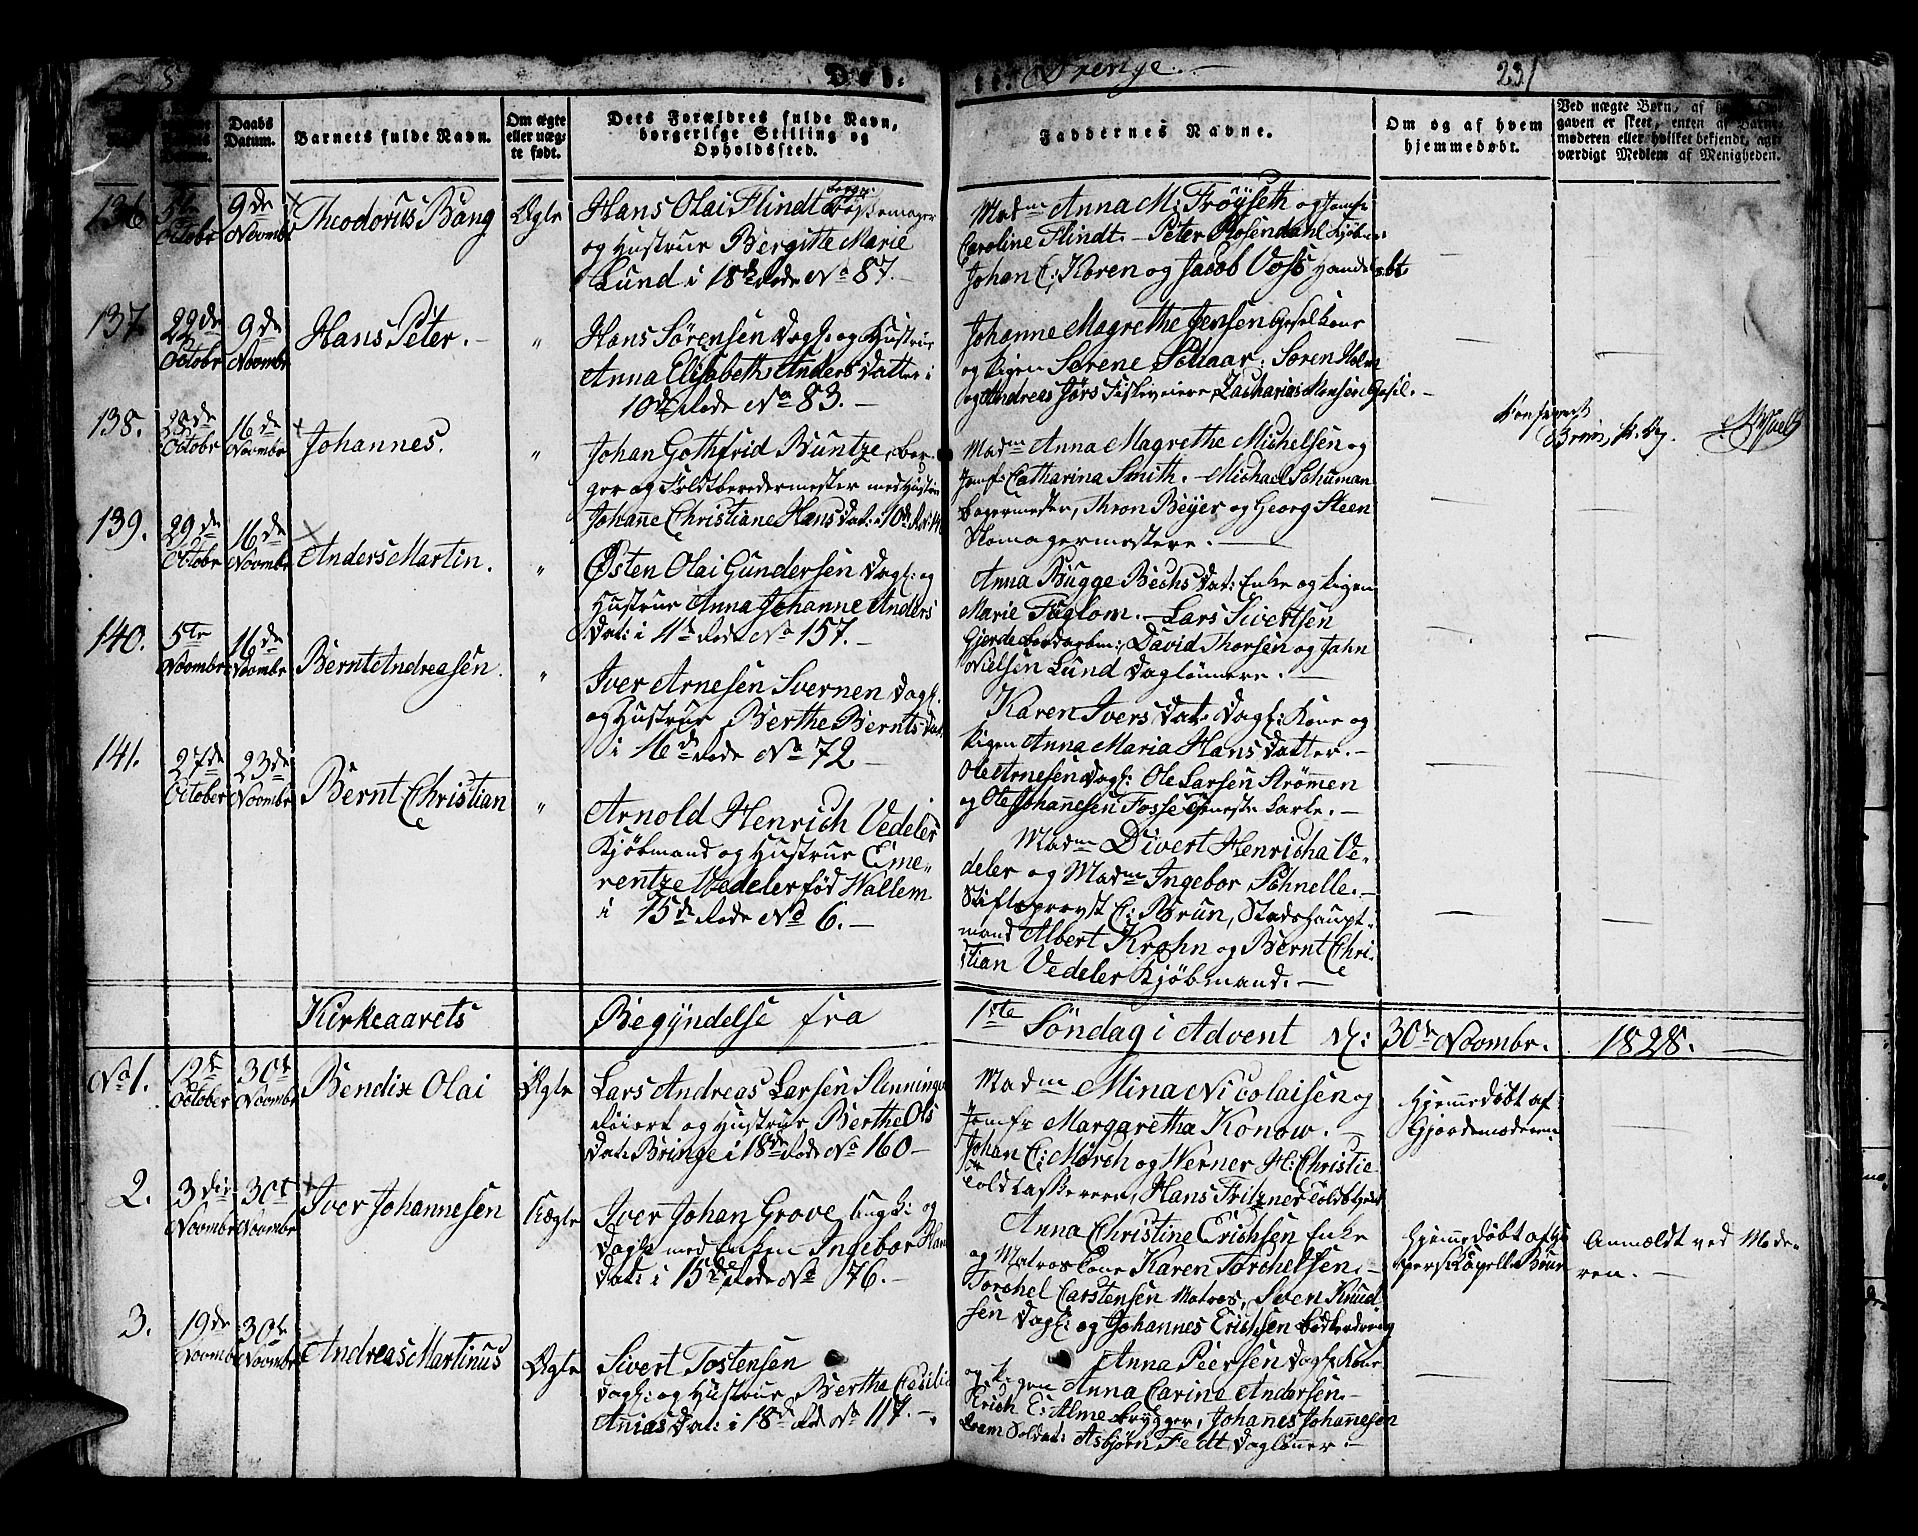 Døb. Drenge. 231
Daabs Datum.
Barnets fulde Navn.
Om ægte eller uægte født.
Dets Forældres fulde Navn, borgerlige Stilling og Opholdssted.
Faddernes Navne.
Om og af hvem hjemmedøbt.
Ved uægte Børn, af
gaven er skeet, enten af Barne-
moderen eller hvilket bekjendt, agt-
værdigt Medlem af Menigheden.
136 October 9de Novmbr Theodorus Bang Ægte
Hans Olai Flindt
og Hustrue Bergitte Marie
Lund i 18de Rode No 87.
Madm Anna M: Frøyseth og Jomf:
Caroline Flindt. Peter Rosendahl Kjøbm:
Johan C: Koren og Jacob Voss Handelsbt:
137. 22de October 9de Novmbr Hans Peter. "
Hans Sørensen Dagl: og Hustrue
Anna Elisabeth Anders Datter i
10de Rode No 83.
Johanne Magrethe Jensen
og Pigen Sørene Søltaar: Søren Holm
og Andreas Jørs Zacharias Monsen
138. 28de October 16de Novmbr Johannes. "
Johan Gothfrid Buntze, bor-
ger og Feldtberedermester med Hustrue
Johanne Christiane Hans Dat: i 10de Rode
Madm Anna Magrethe Michelsen og
Jomf: Catharina Smith. Michael Schuman
Bagermester, Thron Beyer og Georg Steen
Skomagermestere.
139. 29de October 16de Novmbr Anders Martin. "
Østen Olai Gundersen Dagl: og
Hustrue Anna Johanne Anders
Dat: i 4de Rode No 157.
Anna Bugge Bechs Dat: Enke og Pigen
Marie Fuglom. Lars Sivertsen
Gjerde David Thorsen og John
Nielsen Lund Daglønnere.
140. 5te Novmbr 16de Novmbr Bernt Andreasen. "
Iver Arnesen Svernen Dagl:
og Hustrue Berthe Bernts Dat:
i 16de Rode No 72
Karen Ivers Dat: Dagl: Kone og
Pigen Anna Maria Hans Datter.
Ole Arnesen Dagl: Ole Larsen Strømen
og Ole Johannesen Fosse Tjeneste Karle.
141. 27de October 23de Novmbr Bernt Christian "
Arnold Henrich Vedeler
Kjøbmand og Hustrue Eme-
rentze Vedeler fød Wallem
i 15de Rode No 6.
Madm Divert Henricha Ve-
deler og Madm Ingebor Schnelle.
Stiftsprovst C: Brun, Stadshaupt-
mand Albert Krohn og Bernt Chri-
stian Vedeler Kjøbmand.
Kirkeaarets Begyndelse fra 1ste Søndag i Advent d: 30te Novmbr. 1828.
No 1. 12te October 30te Novmbr Bendix Olai Ægte
Lars Andreas Larsen
og Hustrue, Berthe Ols
Dat: Bringe i 18de Rode No 160
Madm Mina Nicolaisen og
Jomfr Margaretha Konow.
Johan C: Mørch og Werner H: Christie
Hans Fritzner Toldbetjent
Hjemmedøbt af
Gjordemoderen
2. 3die Novmbr 30te Novmbr Iver Johannesen Uægte
Iver Johan Grove Ungk: og
Dagl: med Enken Ingebor Hans
Dat: i 15de Rode No 176.
Anna Christine Erichsen Enke
og Matros Kone Karen Torchelsen,
Torchel Carstensen Matros, Sven Knud-
sen Dagl: og Johannes Erichsen
Hjemmedøbt af
Brun
Anmeldt ved Mode-
ren.
3. 19de Novmbr 30te Novmbr Andreas Martinus Ægte
Sivert Tostensen
Dagl: og Hustrue Berthe Cecilie
Anias Dat: i 18de Rode No 117.
Anna Peersen Dagl: Kone
og Pigen Anna Carine Andersen.
Erich E: Alme Brygger, Johanes Johannesen
Soldat: Asbjørn Fedt Daglønner